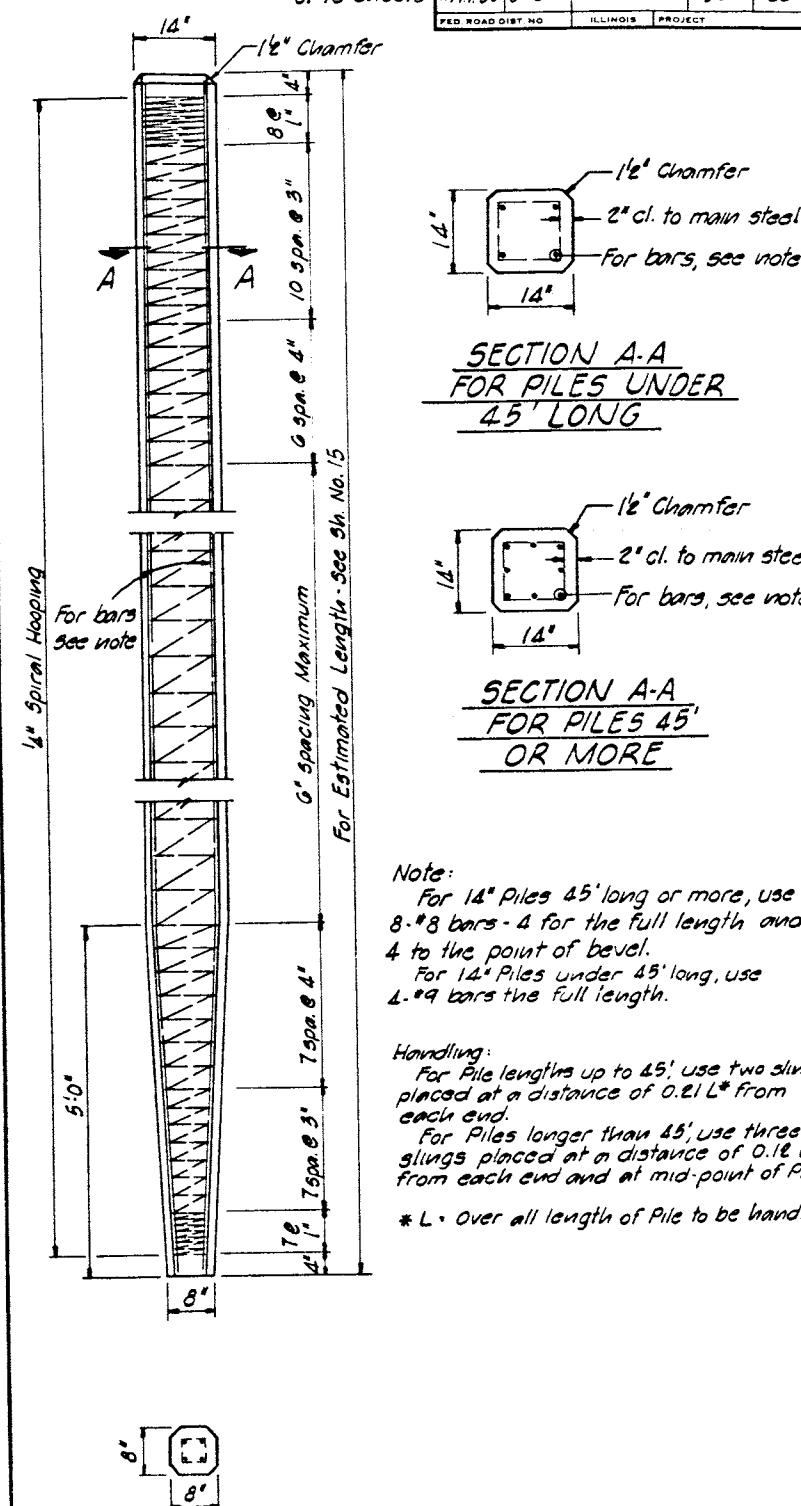 FED. ROAD DIST. NO ILLINOIS PROJECT
14"
1½" Chamfer
4"
8 @ 1"
10 spa. @ 3"
A A
6 spa. @ 4"
¼" Spiral Hooping
For bars see note
6" spacing Maximum
For Estimated Length - see Sh. No. 15
5'-0"
7 spa. @ 4"
7 spa. @ 3"
7 @ 1"
4"
8"
8"
8"
1½" Chamfer
2" cl. to main steel
For bars, see note
14"
14"
SECTION A-A
FOR PILES UNDER
45' LONG
1½" Chamfer
2" cl. to main stee
For bars, see note
14"
14"
SECTION A-A
FOR PILES 45'
OR MORE
Note:
For 14" Piles 45' long or more, use
8-#8 bars - 4 for the full length and
4 to the point of bevel.
For 14" Piles under 45' long, use
4-#9 bars the full length.
Handling:
For Pile lengths up to 45', use two
placed at a distance of 0.21 L* from
each end.
For Piles longer than 45', use three
slings placed at a distance of 0.12
from each end and at mid-point of
* L - Over all length of Pile to be